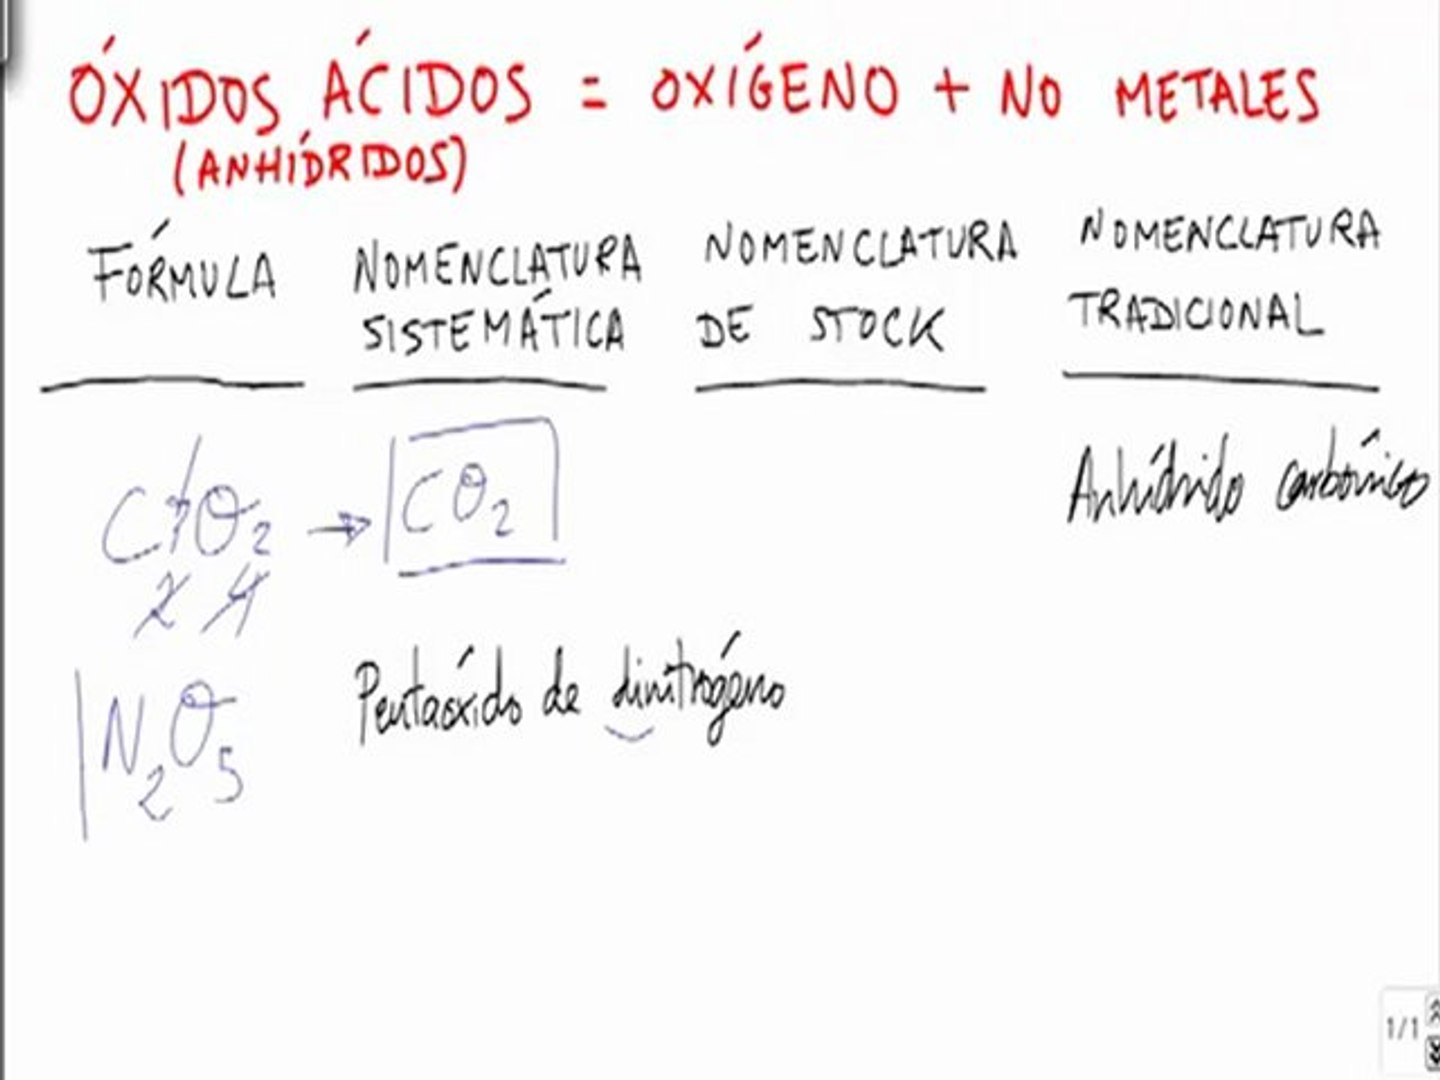 ÓXIDOS ÁCIDOS = OXÍGENO + NO METALES
(ANHÍDRIDOS)
FÓRMULA
NOMENCLATURA
SISTEMÁTICA
NOMENCLATURA
DE STOCK
NOMENCLATURA
TRADICIONAL
CO2 → CO2 Anhídrido carbónico
2 4
N2O5 Pentaóxido de dinitrógeno
1/1